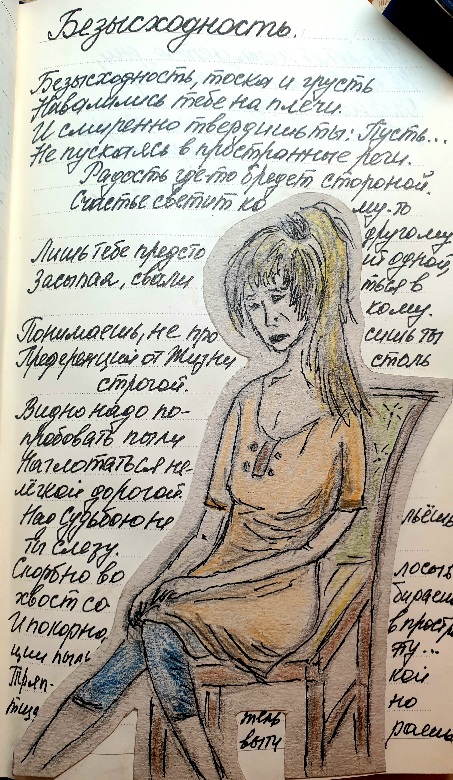 Безысходность.
Безысходность, тоска и грусть
Навалились тебе на плечи.
И смиренно твердишь ты: Пусть...
Не пускаясь в пространные речи.
Радость где-то бредет стороной.
Счастье светит ко му-то
другому
Лишь тебе предсто ит одной,
Засыпая, свали ться в
кому.
Понимаешь, не про сишь ты
Преференций от Жизни столь
строгой.
Видно надо по-
пробовать пыли
Наглотаться не-
лёгкой дорогой.
Над Судьбою не льёшь
ты слезу.
Скорбно во лосы
хвост со бираешь
И покорно, в простр
ции пыль ту...
Тряп- кой
тща тель но
выти раешь